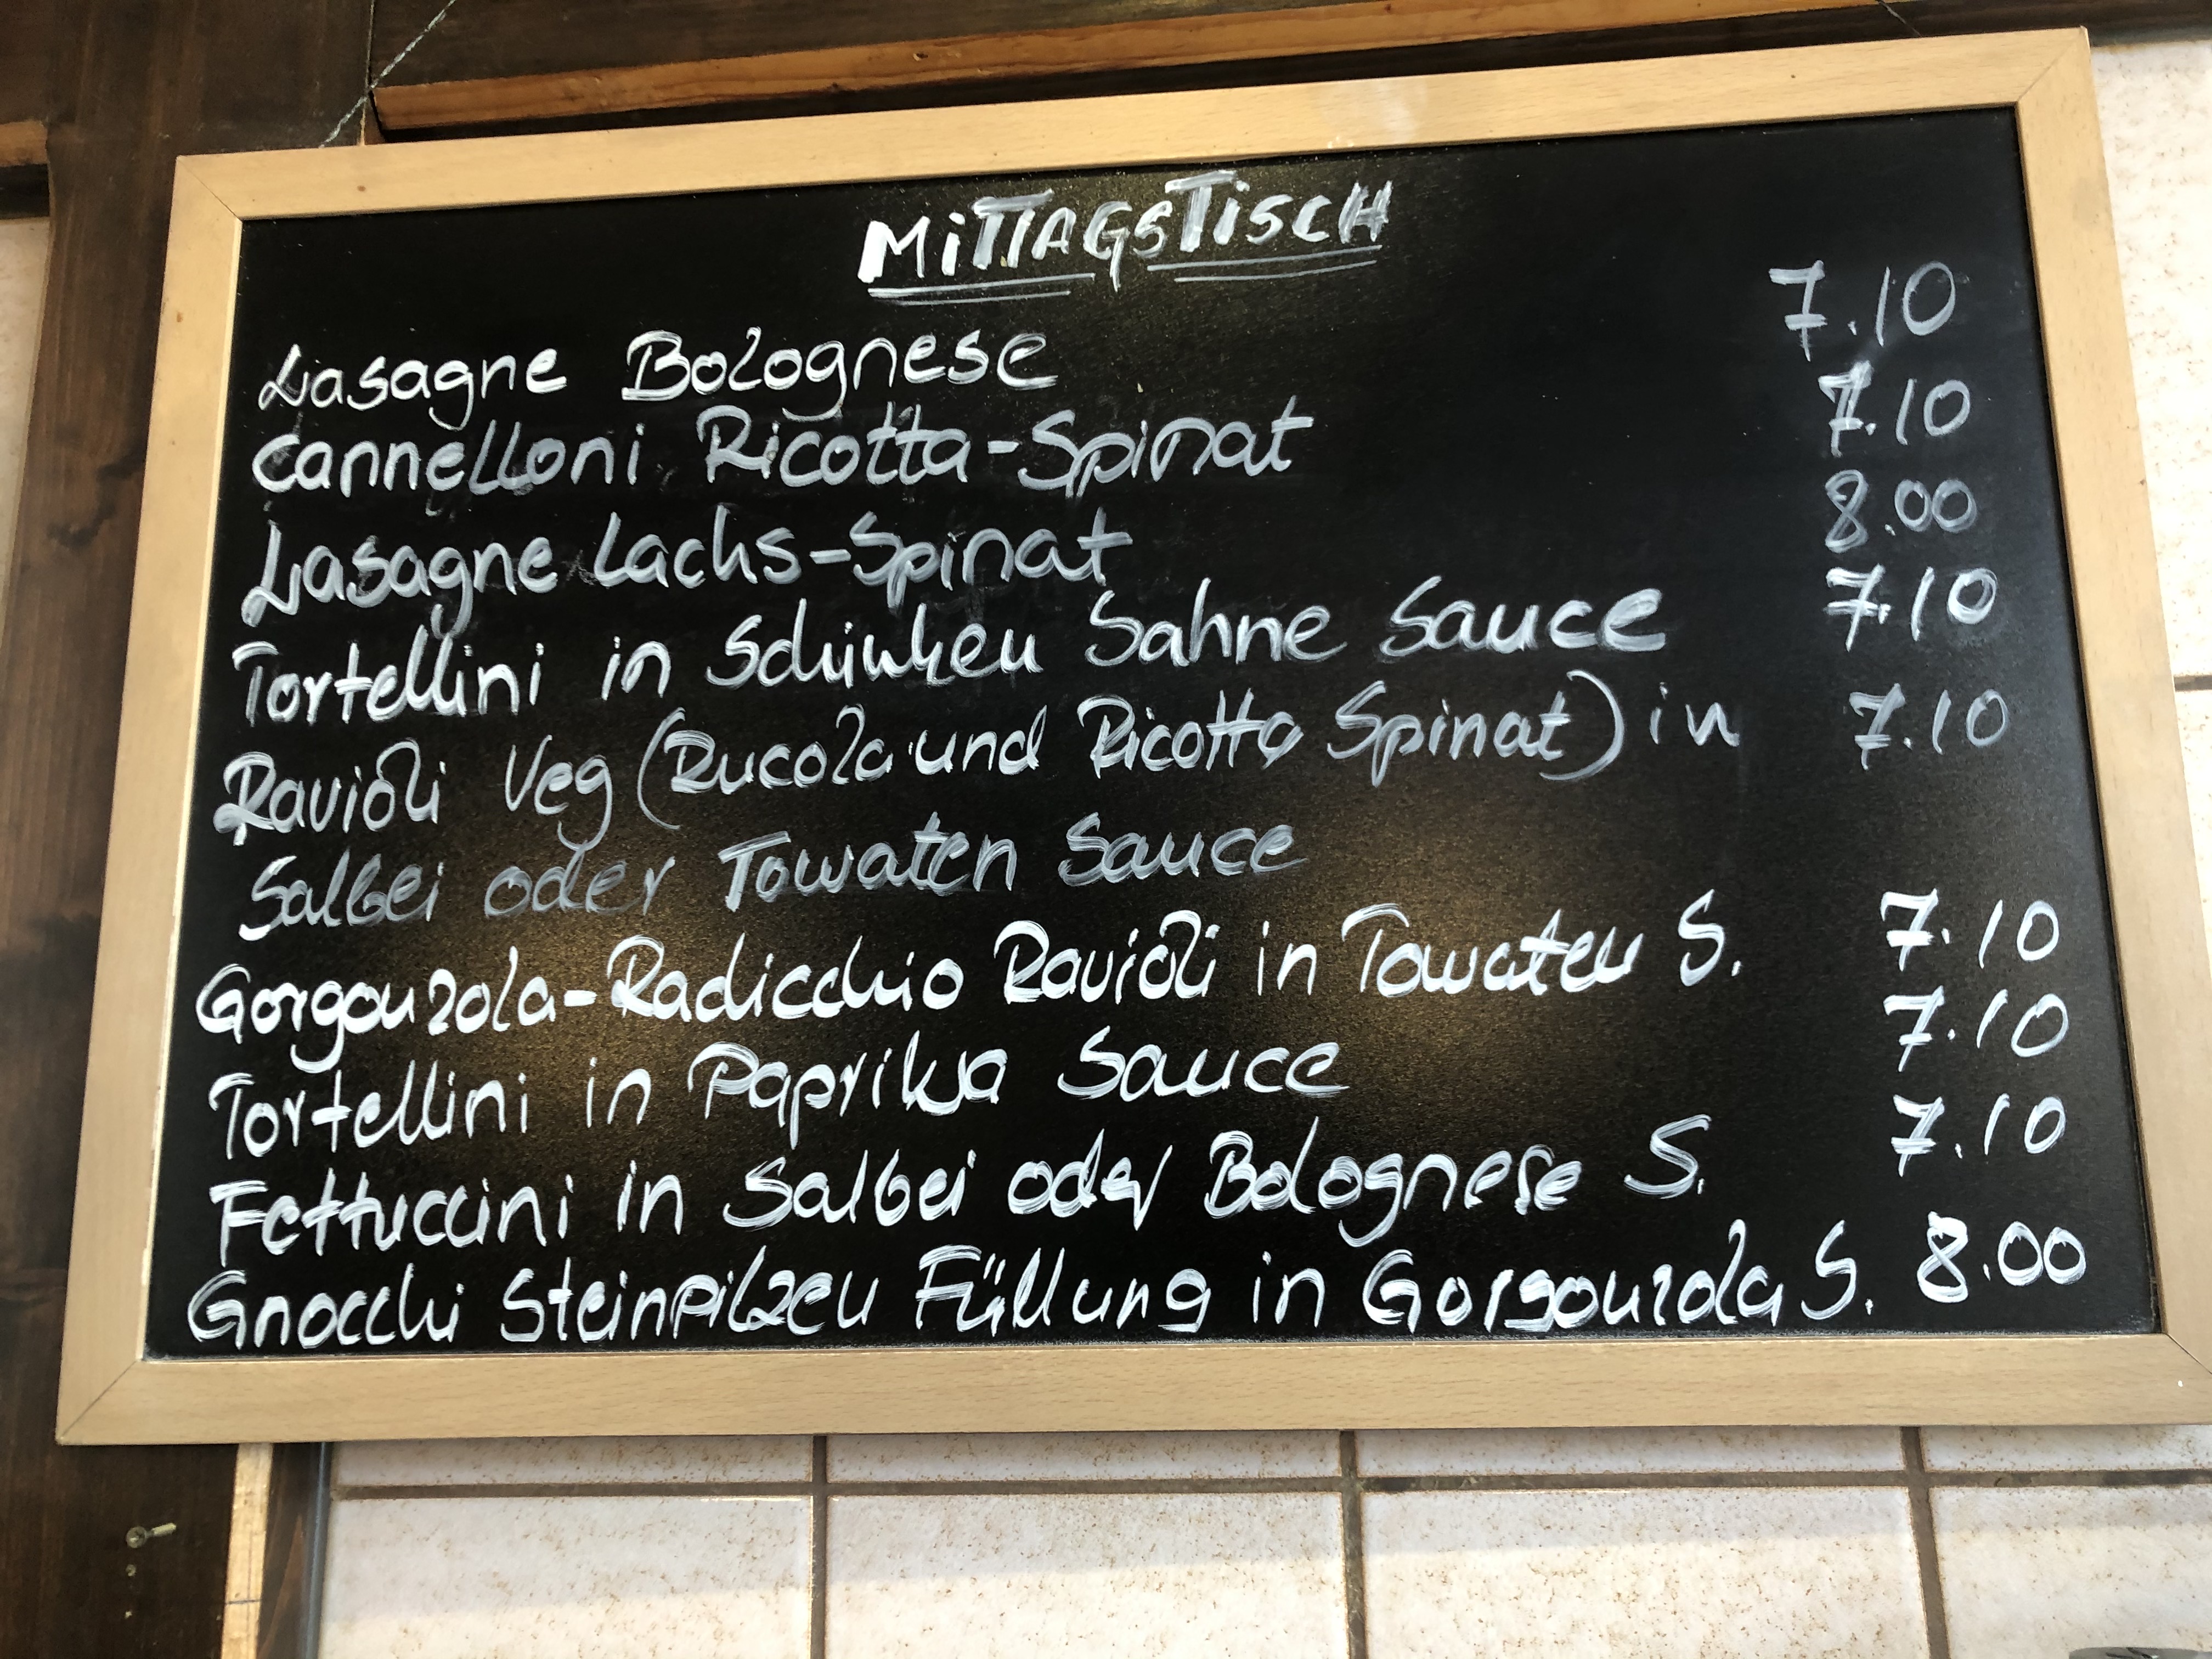 MiTTAGSTiSCH
Lasagne Bolognese 7.10
Cannelloni Ricotta-Spinat 7.10
Lasagne Lachs-Spinat 8.00
Tortellini in Schinken Sahne Sauce 7.10
Ravioli Veg (Rucola und Ricotta Spinat) in 7.10
Salbei oder Tomaten Sauce
Gorgonzola-Radicchio Ravioli in Tomaten S. 7.10
Tortellini in Paprika Sauce 7.10
Fettuccini in Salbei oder Bolognese S. 7.10
Gnocchi Steinpilzen Füllung in Gorgonzola S. 8.00